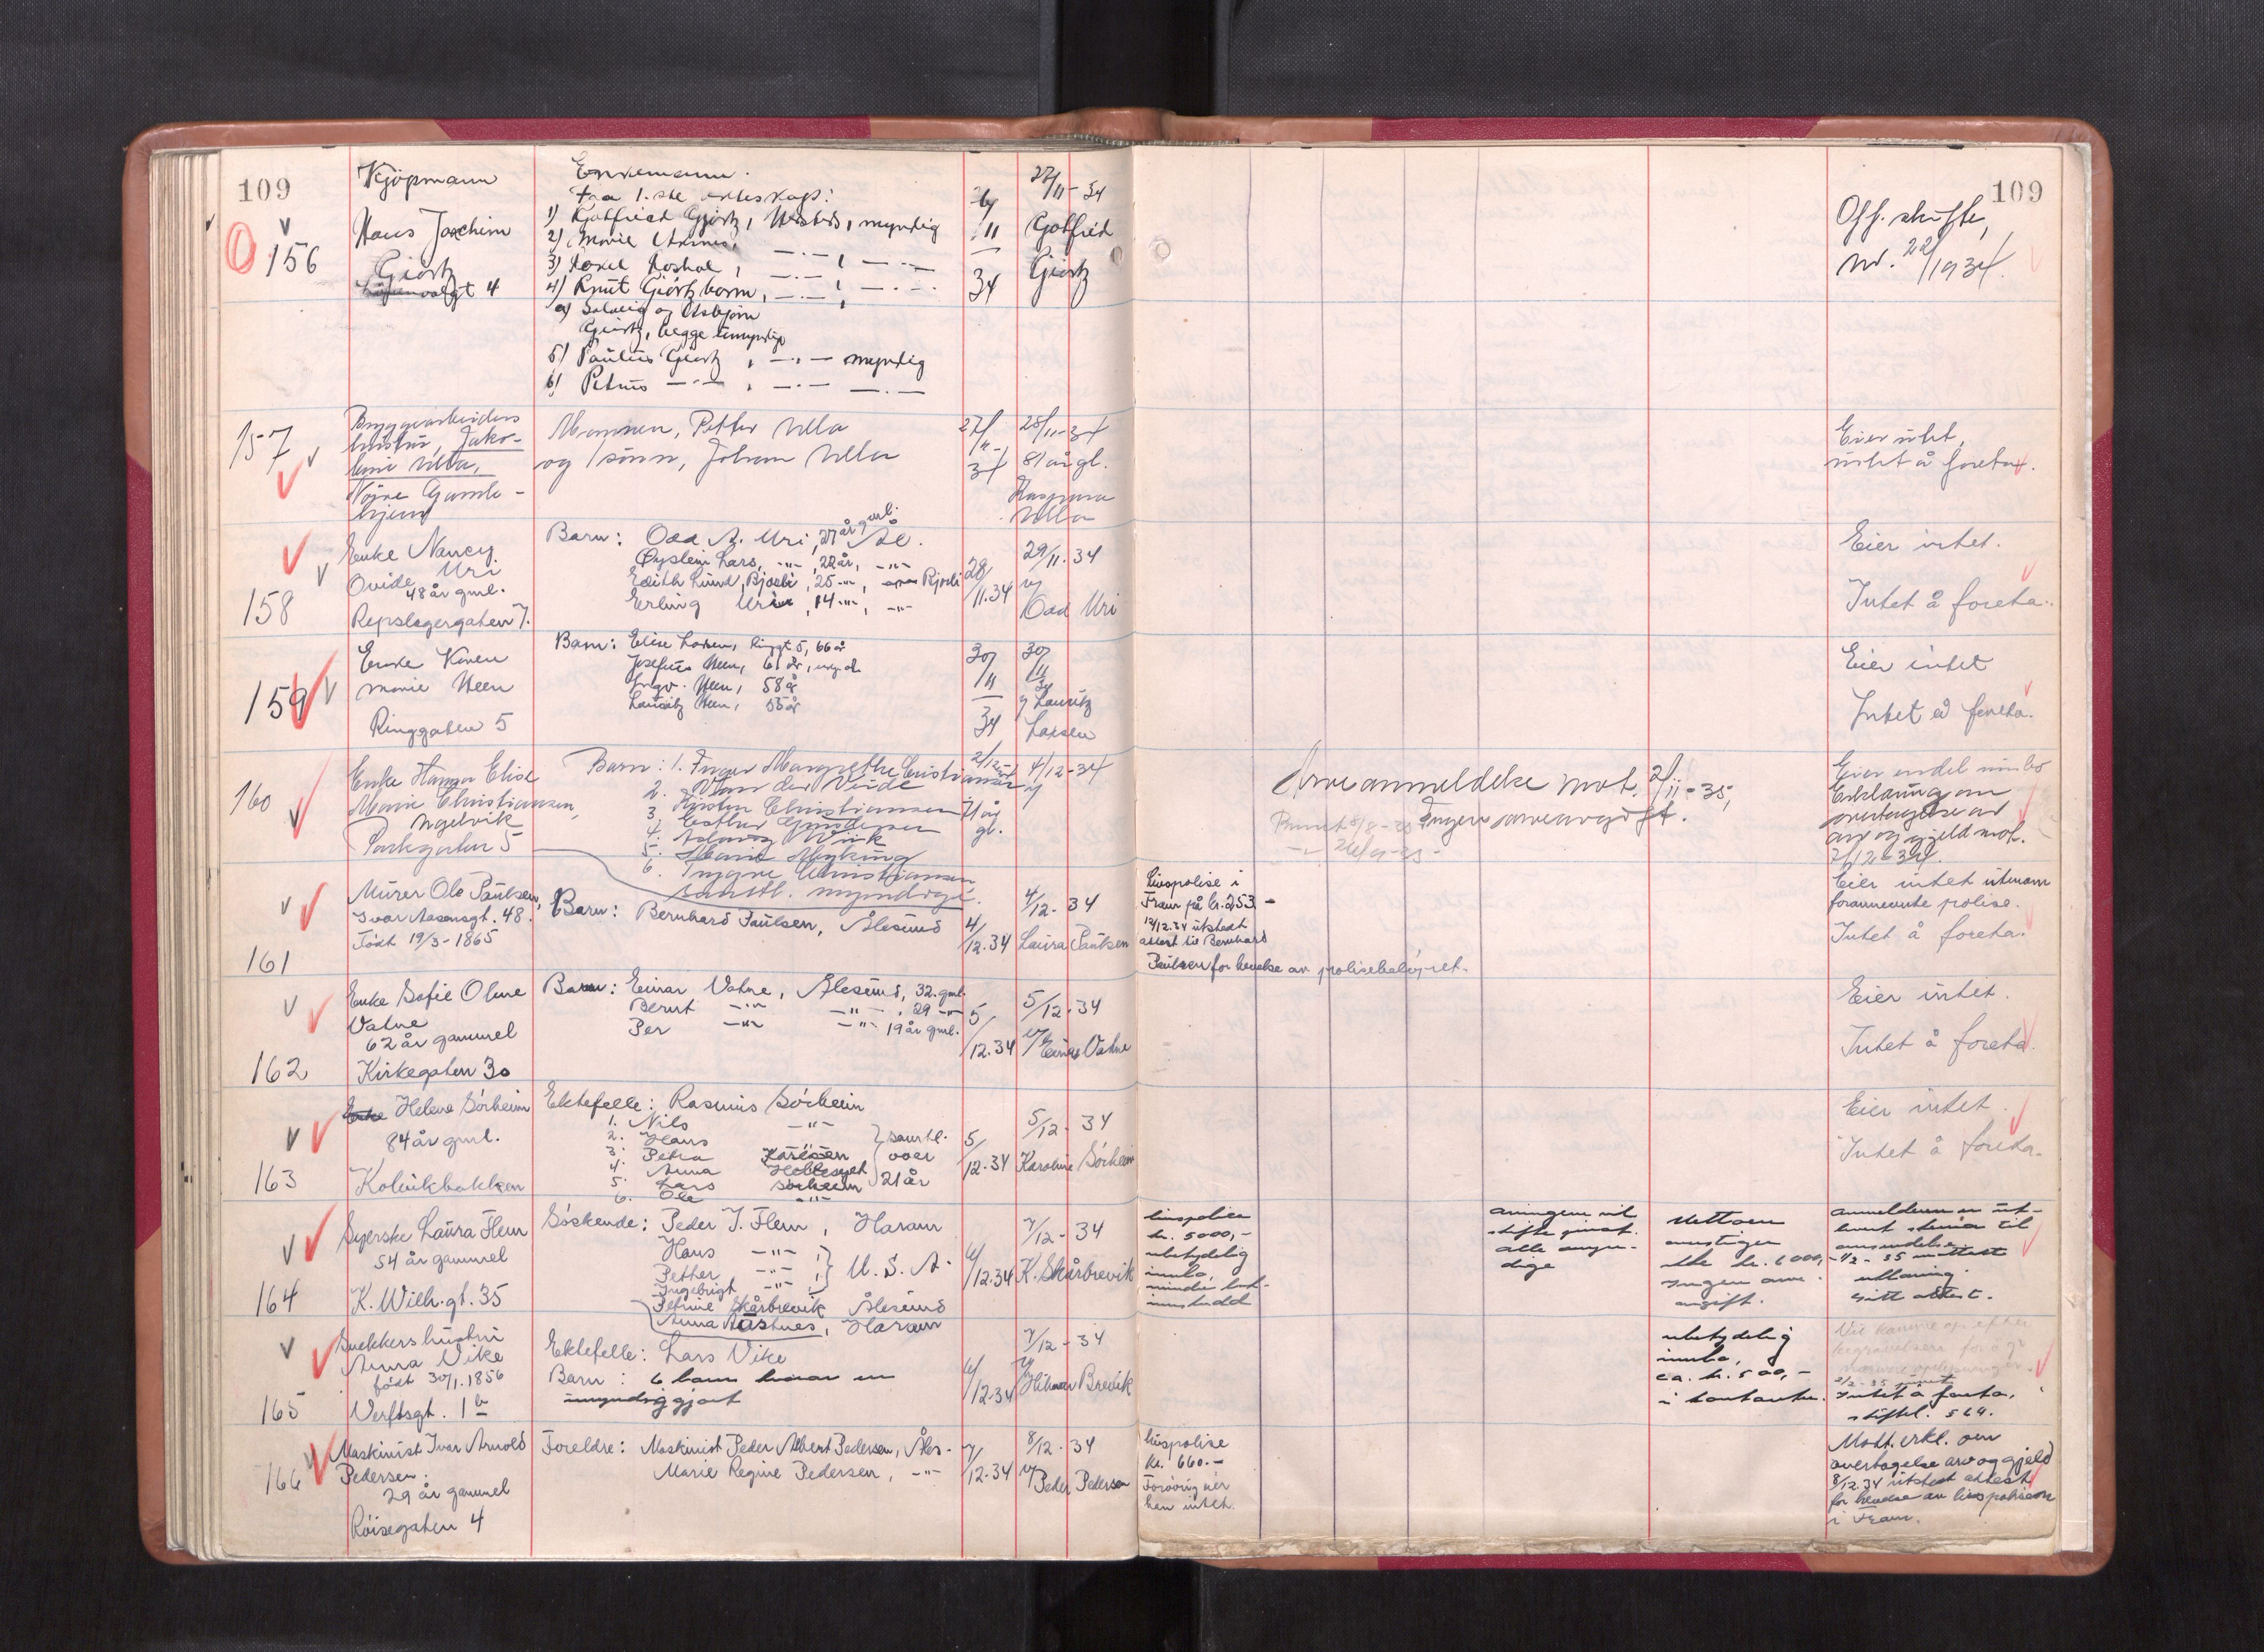 109
109
Kjøpmann
Hans Joachim
Giørtz
gt 4
156
Enkemann.
fra 1.ste ekteskap:
1) Gotfried Giørtz, myndig
2) Marie
3)
4) Knut Giørtz barn,
a) Solveig og Asbjørn
Giørtz, begge umyndige
5) Paulus Giørtz, —"— myndig
6) Petrus —"—, —"— —"—
11
34
27/11-34
Gotfred
Giørtz
Off. skifte,
nr. 22/1934.
157
Bryggearbeiders
hustru, Jako-
bine Ulla,
Nøjre Gamle-
hjem
Mannen, Petter Ulla
og 1 sønn, Johan Ulla
27/
11-
34
28/11-34
81 år gl.
Kaspara
Ulla
Eier intet,
intet å foreta.
158
Enke Nancy
Ovide Uri
48 år gml.
Repslagergaten 7.
Barn: Odd A. Uri, 27 år gml. Ål.
Øystein Lars, —"—, 22 år, —"—
Edith Lund, Bjorli, 25 —"—, Bjorli
Erling Uri, 14 —"—, —"—
28/
11.34
29/11.34
v/
Odd Uri
Eier intet.
Intet å foreta.
159
Enke Karen
Marie Steen
Ringgaten 5
Barn: Elise Larsen, Ringgt 5, 66 år
Josefine Steen, 61 år,
Ingv. Steen, 58 år
Lauritz Steen, 55 år
30/
11
34
30/
11
34
v/ Lauritz
Larsen
Eier intet
Intet å foreta.
160
Enke Hanna Elise
Marie Christiansen,
Ngelvik
Parkgaten 5
Barn: 1. Inger Margrethe Cristiansen
2. Van der Veide
Kirsten Christiansen
3. Esther Gundersen
4. Aslaug Wiik
5. Marie Myking
6. Yngve Christiansen
samtl. myndige.
2/12-34
4/12-34
71 år
gl.
Arveanmeldelse mot. 2/11-35,
Ingen arveavgift.
Eier endel innbo
Erklæring om
overtagelse av
arv og gjeld mot.
7/12-34.
161
Murer Ole Paulsen,
Ivar Aasensgt. 48.
Født 19/3-1865
Barn: Bernhard Paulsen, Ålesund
4/
12.34
4/12-34
Laura Paulsen
Livspolise i
Fram på kr. 253 –
12/12.34 utstedt
attest til Bernhard
Paulsen for hevelse av polisebeløpet.
Eier intet utenom
forannevnte polise.
Intet å foreta.
162
Enke Sofie Oline
Vatne
62 år gammel
Kirkegaten 30
Barn: Einar Vatne, Ålesund, 32. gml.
Bernt —"— —"—, 29 —"—
Per —"— —"— 19 år gml.
5/
12.34
5/12.34
v/ Einar Vatne
Eier intet.
Intet å foreta.
163
Enke Helene Sörheim
84 år gml.
Kolvikbakken
Ektefelle: Rasmus Sörheim
1. Nils —"—
2. Hans —"—
3. Petra Karlsen
4. Anna
5. Lars Sörheim
6. Ole —"—
samtl.
over
21 år
5/
12.34
5/12-34
Karoline Sörheim
Eier intet.
Intet å foreta.
164
Syerske Laura Flem
54 år gammel
K. Wilh. gt. 35
Söskende: Peder J. Flem, Haram
Hans —"—
Petter —"—
Ingebrigt —"—
U. S. A.
Petrine Skårbrevik Ålesund
Anna Aastnes, Haram
6/
12.34
7/12-34
K. Skårbrevik
livspolice
kr. 5000,-
ubetydelig
innbo,
mindre bank-
innskudd
arvingene vil
skifte privat.
alle myn-
dige
Nettoen
overstiger
ikke kr. 6000,-
Ingen arve-
avgift.
anmelderen er ut-
levert skema til
anmeldelse
1/2-35 mottatt
utlåning.
Gitt attest.
165
Snekkers hustru
Anna Vike
født 30/1.1856
Verftsgt. 1 b
Ektefelle: Lars Vike
Barn: 6 barn hvorav en
umyndiggjort
6/
12.34
7/12-34
v/
Hilmar Brevik
ubetydelig
innbo,
ca. kr. 500,-
i kontanter.
Vil komme op efter
begravelsen for å gi
nærmere oplysninger.
2/2-35
Intet å foreta,
skiftel. § 64.
166
Maskinist Ivar Arnold
Pedersen.
29 år gammel
Röisegaten 4
Foreldre: Maskinist Peder Albert Pedersen, Åles.
Marie Regine Pedersen, —"—
7/
12.34
8/12.34
v/ Peder Pedersen
Livspolise
kr. 660.–
Forøvrig eier
han intet.
Mott. erkl. om
overtagelse arv og gjeld
8/12.34 utstedt attest
for hevelse av livspolisen
i Fram.